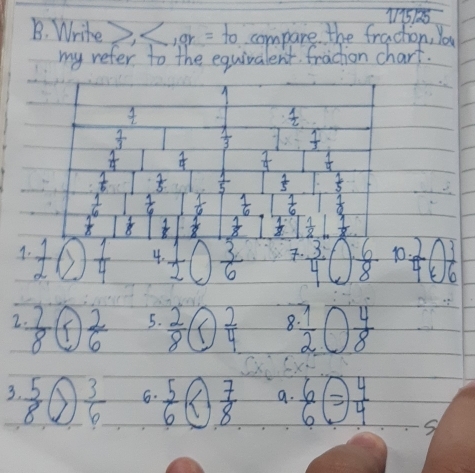 1/15/25
B. Write >, <, or = to compare the fraction. You
my refer to the equivalent fraction chart.
1
1/2 1/2
1/3 1/3 1/3
1/4 1/4 1/4 1/4
1/5 1/5 1/5 1/5 1/5
1/6 1/6 1/6 1/6 1/6 1/6
1/8 1/8 1/8 1/8 1/8 1/8 1/8 1/8
1. 1/2 > 1/4 4. 1/2 3/6 7. 3/4 6/8 10.
2. 2/8 < 2/6 5. 2/8 < 2/4 8. 1/2 4/8
3. 5/8 > 3/6 6. 5/6 < 7/8 9. 6/6 = 4/4